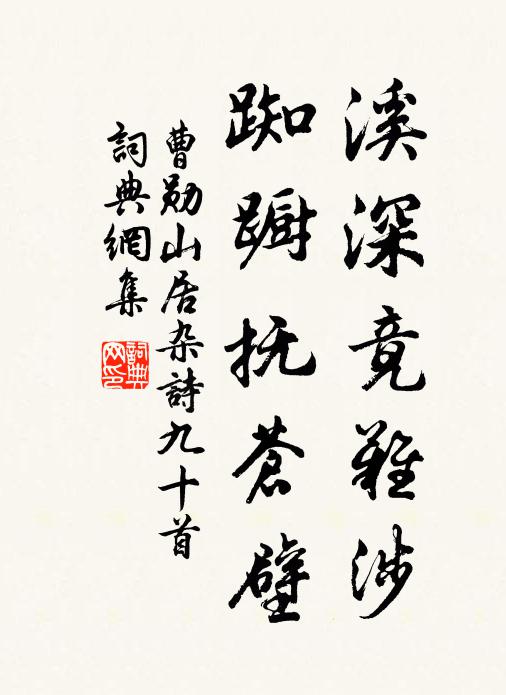 溪深竟難涉
踟蹰抚蒼壁
曹勛山居杂詩九十首
詞典網集
詞典
网印